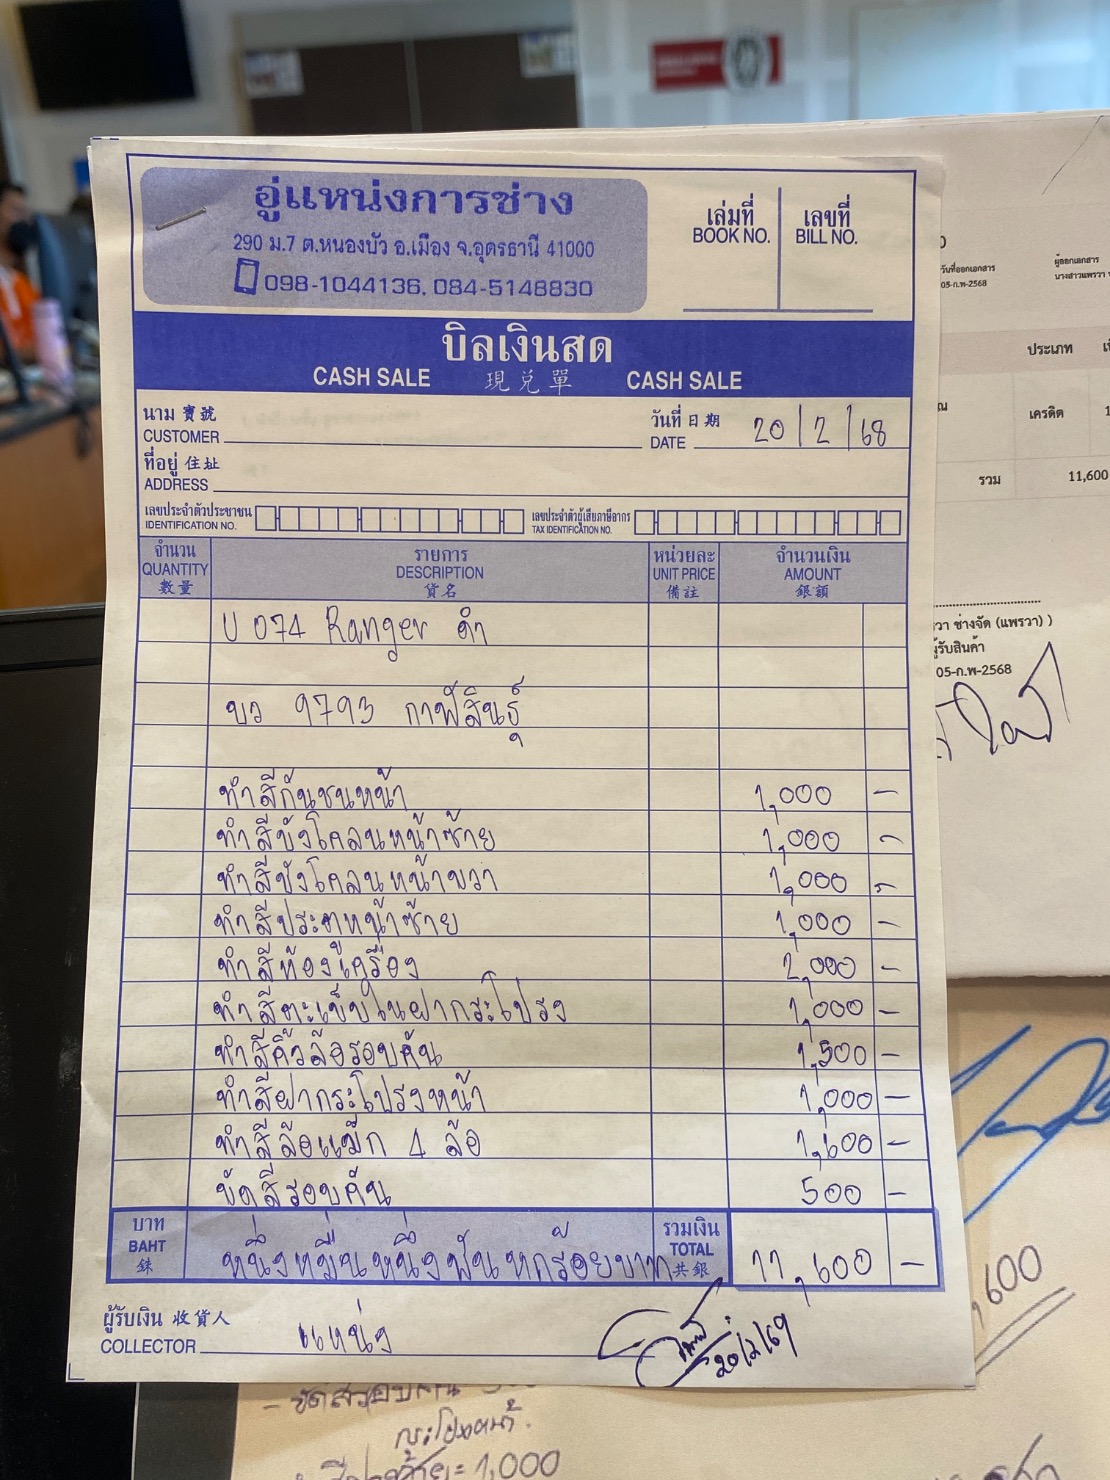 อู่แหน่งการช่าง
290 ม.7 ต.หนองบัว อ.เมือง จ.อุดรธานี 41000
098-1044136, 084-5148830
เล่มที่
BOOK NO.
เลขที่
BILL NO.
บิลเงินสด
CASH SALE 現兑單 CASH SALE
นาม 寶號
CUSTOMER
วันที่ 日期
DATE 20/2/68
ที่อยู่ 住址
ADDRESS
เลขประจำตัวประชาชน
IDENTIFICATION NO.
เลขประจำตัวผู้เสียภาษีอากร
TAX IDENTIFICATION NO.
จำนวน
QUANTITY
數量
รายการ
DESCRIPTION
貨名
หน่วยละ
UNIT PRICE
備註
จำนวนเงิน
AMOUNT
銀額
U 074 Ranger ดำ
บว 9793 กาฬสินธุ์
ทำสีกันชนหน้า 1,000 -
ทำสีบังโคลนหน้าซ้าย 1,000 -
ทำสีบังโคลนหน้าขวา 1,000 -
ทำสีประตูหน้าซ้าย 1,000 -
ทำสีห้องเครื่อง 2,000 -
ทำสีตะเข็บในฝากระโปรง 1,000 -
ทำสีคิ้วล้อรอบคัน 1,500 -
ทำสีฝากระโปรงหน้า 1,000 -
ทำสีล้อแม็ก 4 ล้อ 1,600 -
ขัดสีรอบคัน 500 -
บาท
BAHT
銖
หนึ่งหมื่นหนึ่งพันหกร้อยบาท
รวมเงิน
TOTAL
共銀
11,600 -
ผู้รับเงิน 收貨人
COLLECTOR แหน่ง
วันที่ออกเอกสาร
05-ก.พ-2568
ผู้ออกเอกสาร
นางสาวแพรวา
ประเภท
เครดิต
รวม 11,600
วา ช่างจัด (แพรวา) )
ผู้รับสินค้า
05-ก.พ-2568
,600
- ขัดสีรอบคัน
กระโปรงหน้า
= 1,000